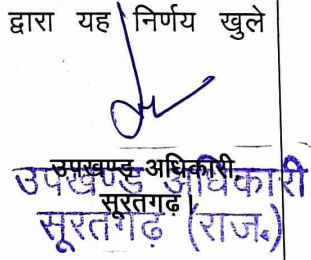 द्वारा यह निर्णय खुले
उपखण्ड अधिकारी,
सूरतगढ़।
उपखण्ड अधिकारी
सूरतगढ़ (राज.)